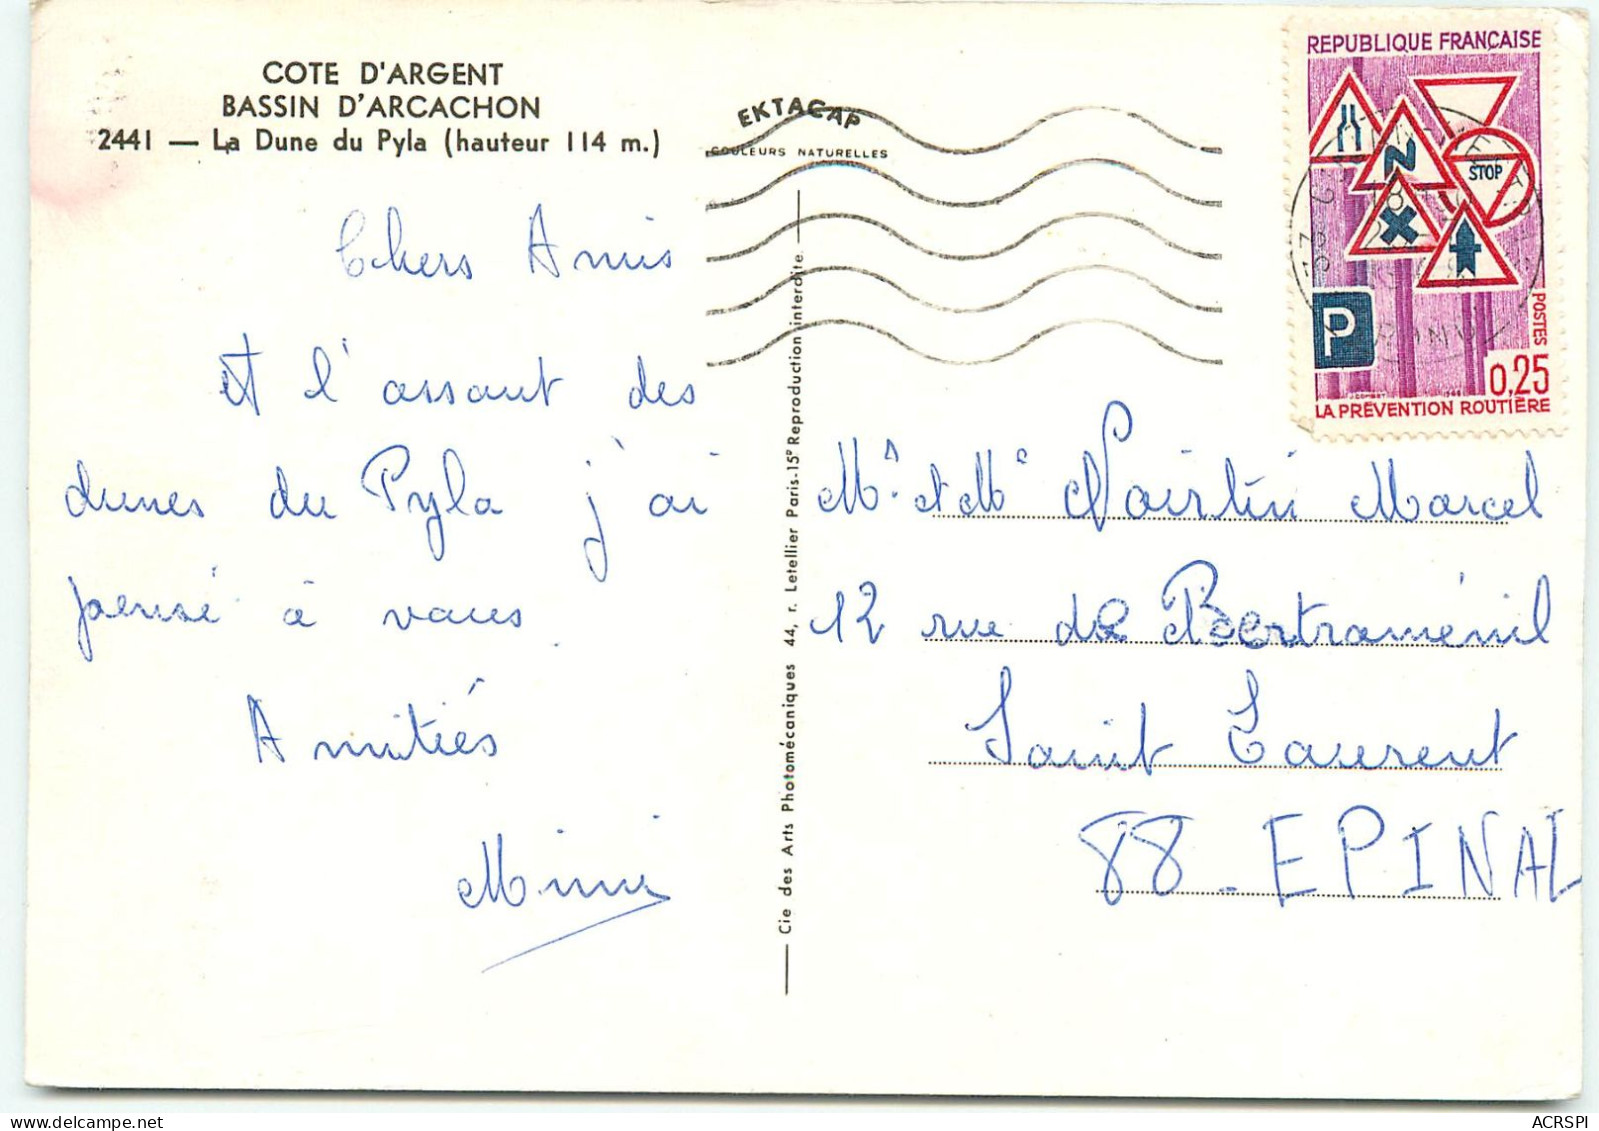 COTE D'ARGENT
BASSIN D'ARCACHON
2441 — La Dune du Pyla (hauteur 114 m.)
EKTACAP
COULEURS NATURELLES
REPUBLIQUE FRANÇAISE
STOP
P
POSTES
0,25
LA PRÉVENTION ROUTIÈRE
Chers Amis
At l'assaut des
dunes du Pyla j'ai
pensé à vous
Amitiés
Mimi
Cie des Arts Photomécaniques 44, r. Letellier Paris-15e Reproduction interdite
Mr et Me Noirtin Marcel
12 rue de Bertraménil
Saint Laurent
88 - EPINAL
ACRSPI